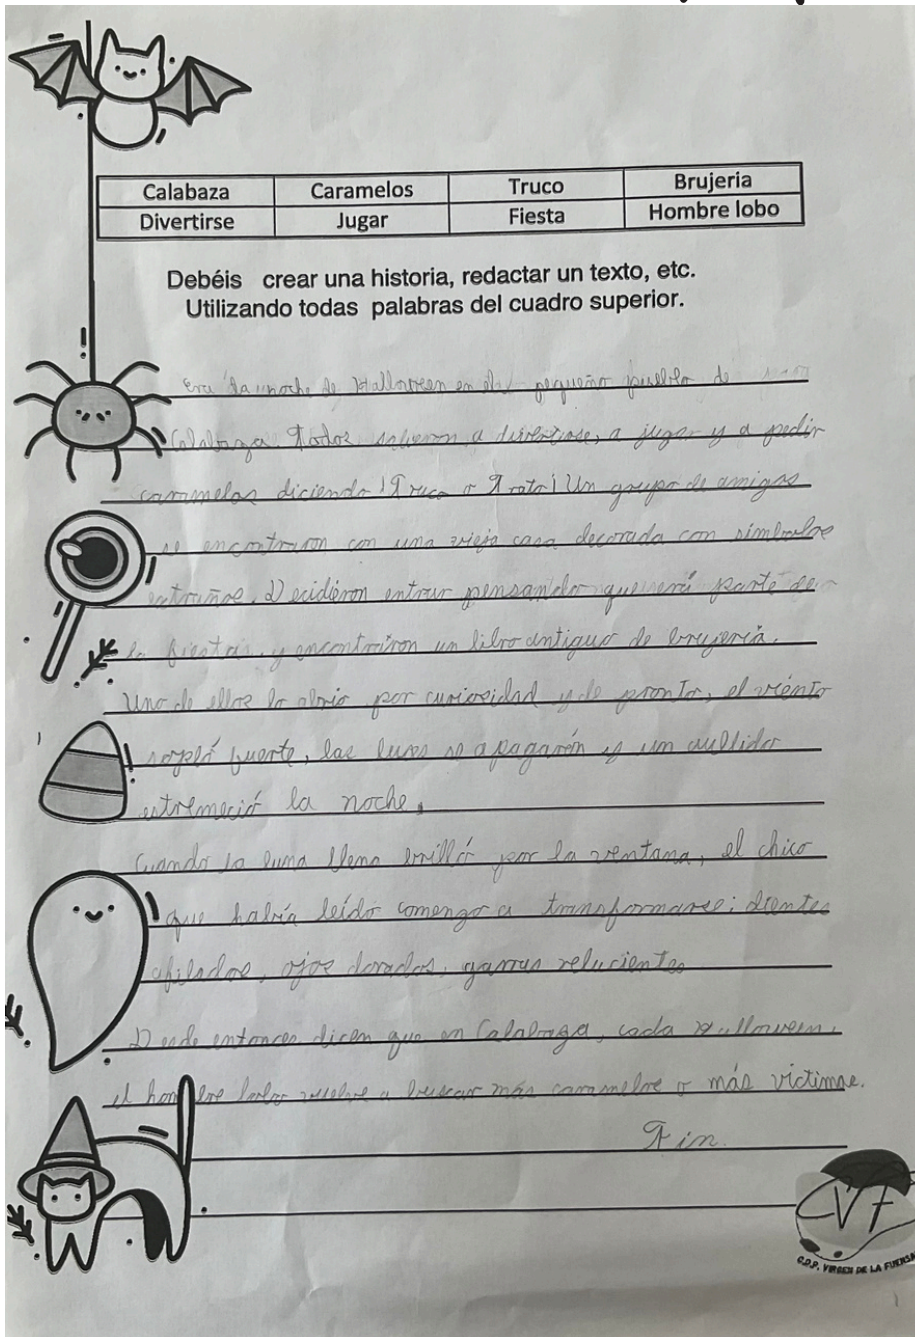 Calabaza Caramelos Truco Brujeria
Divertirse Jugar Fiesta Hombre lobo
Debéis crear una historia, redactar un texto, etc.
Utilizando todas palabras del cuadro superior.
Era la noche de Halloween en el pequeño pueblo de
Calabaza. Todos salieron a divertirse, a jugar y a pedir
caramelos diciendo ¡Truco o Trato! Un grupo de amigos
se encontraron con una vieja casa decorada con simbolos
extraños. Decidieron entrar pensando que será parte de
la fiesta, y encontraron un libro antiguo de brujería.
Uno de ellos lo abrio por curiosidad y de pronto, el viento
sopló fuerte, las luces se apagarón y un aullido
estremeció la noche.
Cuando la luna llena brilló por la ventana, el chico
que había leído comenzo a transformarse: dientes
afilados, ojos dorados, garras relucientes
Desde entonces dicen que en Calabaza, cada Halloween,
el hombre lobo vuelve a buscar más caramelos o más víctimas.
Fin.
CVF
C.D.P. VIRGEN DE LA